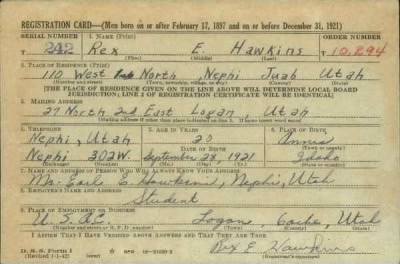 REGISTRATION CARD—(Men born on or after February 17, 1897 and on or before December 31, 1921)
SERIAL NUMBER 1. NAME (Print) ORDER NUMBER
242 Rex E. Hawkins T 10,294
(First) (Middle) (Last)
2. PLACE OF RESIDENCE (Print)
110 West North, Nephi Juab Utah
(Number and street) (Town, township, village, or city) (County) (State)
[THE PLACE OF RESIDENCE GIVEN ON THE LINE ABOVE WILL DETERMINE LOCAL BOARD
JURISDICTION; LINE 2 OF REGISTRATION CERTIFICATE WILL BE IDENTICAL]
3. MAILING ADDRESS
27 North 2nd East Logan, Utah
[Mailing address if other than place indicated on line 2. If same insert word same]
4. TELEPHONE 5. AGE IN YEARS 6. PLACE OF BIRTH
Nephi, Utah 20 Annis
DATE OF BIRTH (Town or county)
Nephi 302W. September 28, 1921 Idaho
(Exchange) (Number) (Mo.) (Day) (Yr.) (State or country)
7. NAME AND ADDRESS OF PERSON WHO WILL ALWAYS KNOW YOUR ADDRESS
Mr. Earl Hawkins, Nephi, Utah
8. EMPLOYER'S NAME AND ADDRESS
Student
9. PLACE OF EMPLOYMENT OR BUSINESS
U. S. A. C. Logan, Cache, Utah
(Number and street or R. F. D. number) (Town) (County) (State)
I AFFIRM THAT I HAVE VERIFIED ABOVE ANSWERS AND THAT THEY ARE TRUE.
D. S. S. Form 1
(Revised 1-1-42) (over) 16-21630-2
Rex E Hawkins
(Registrant's signature)